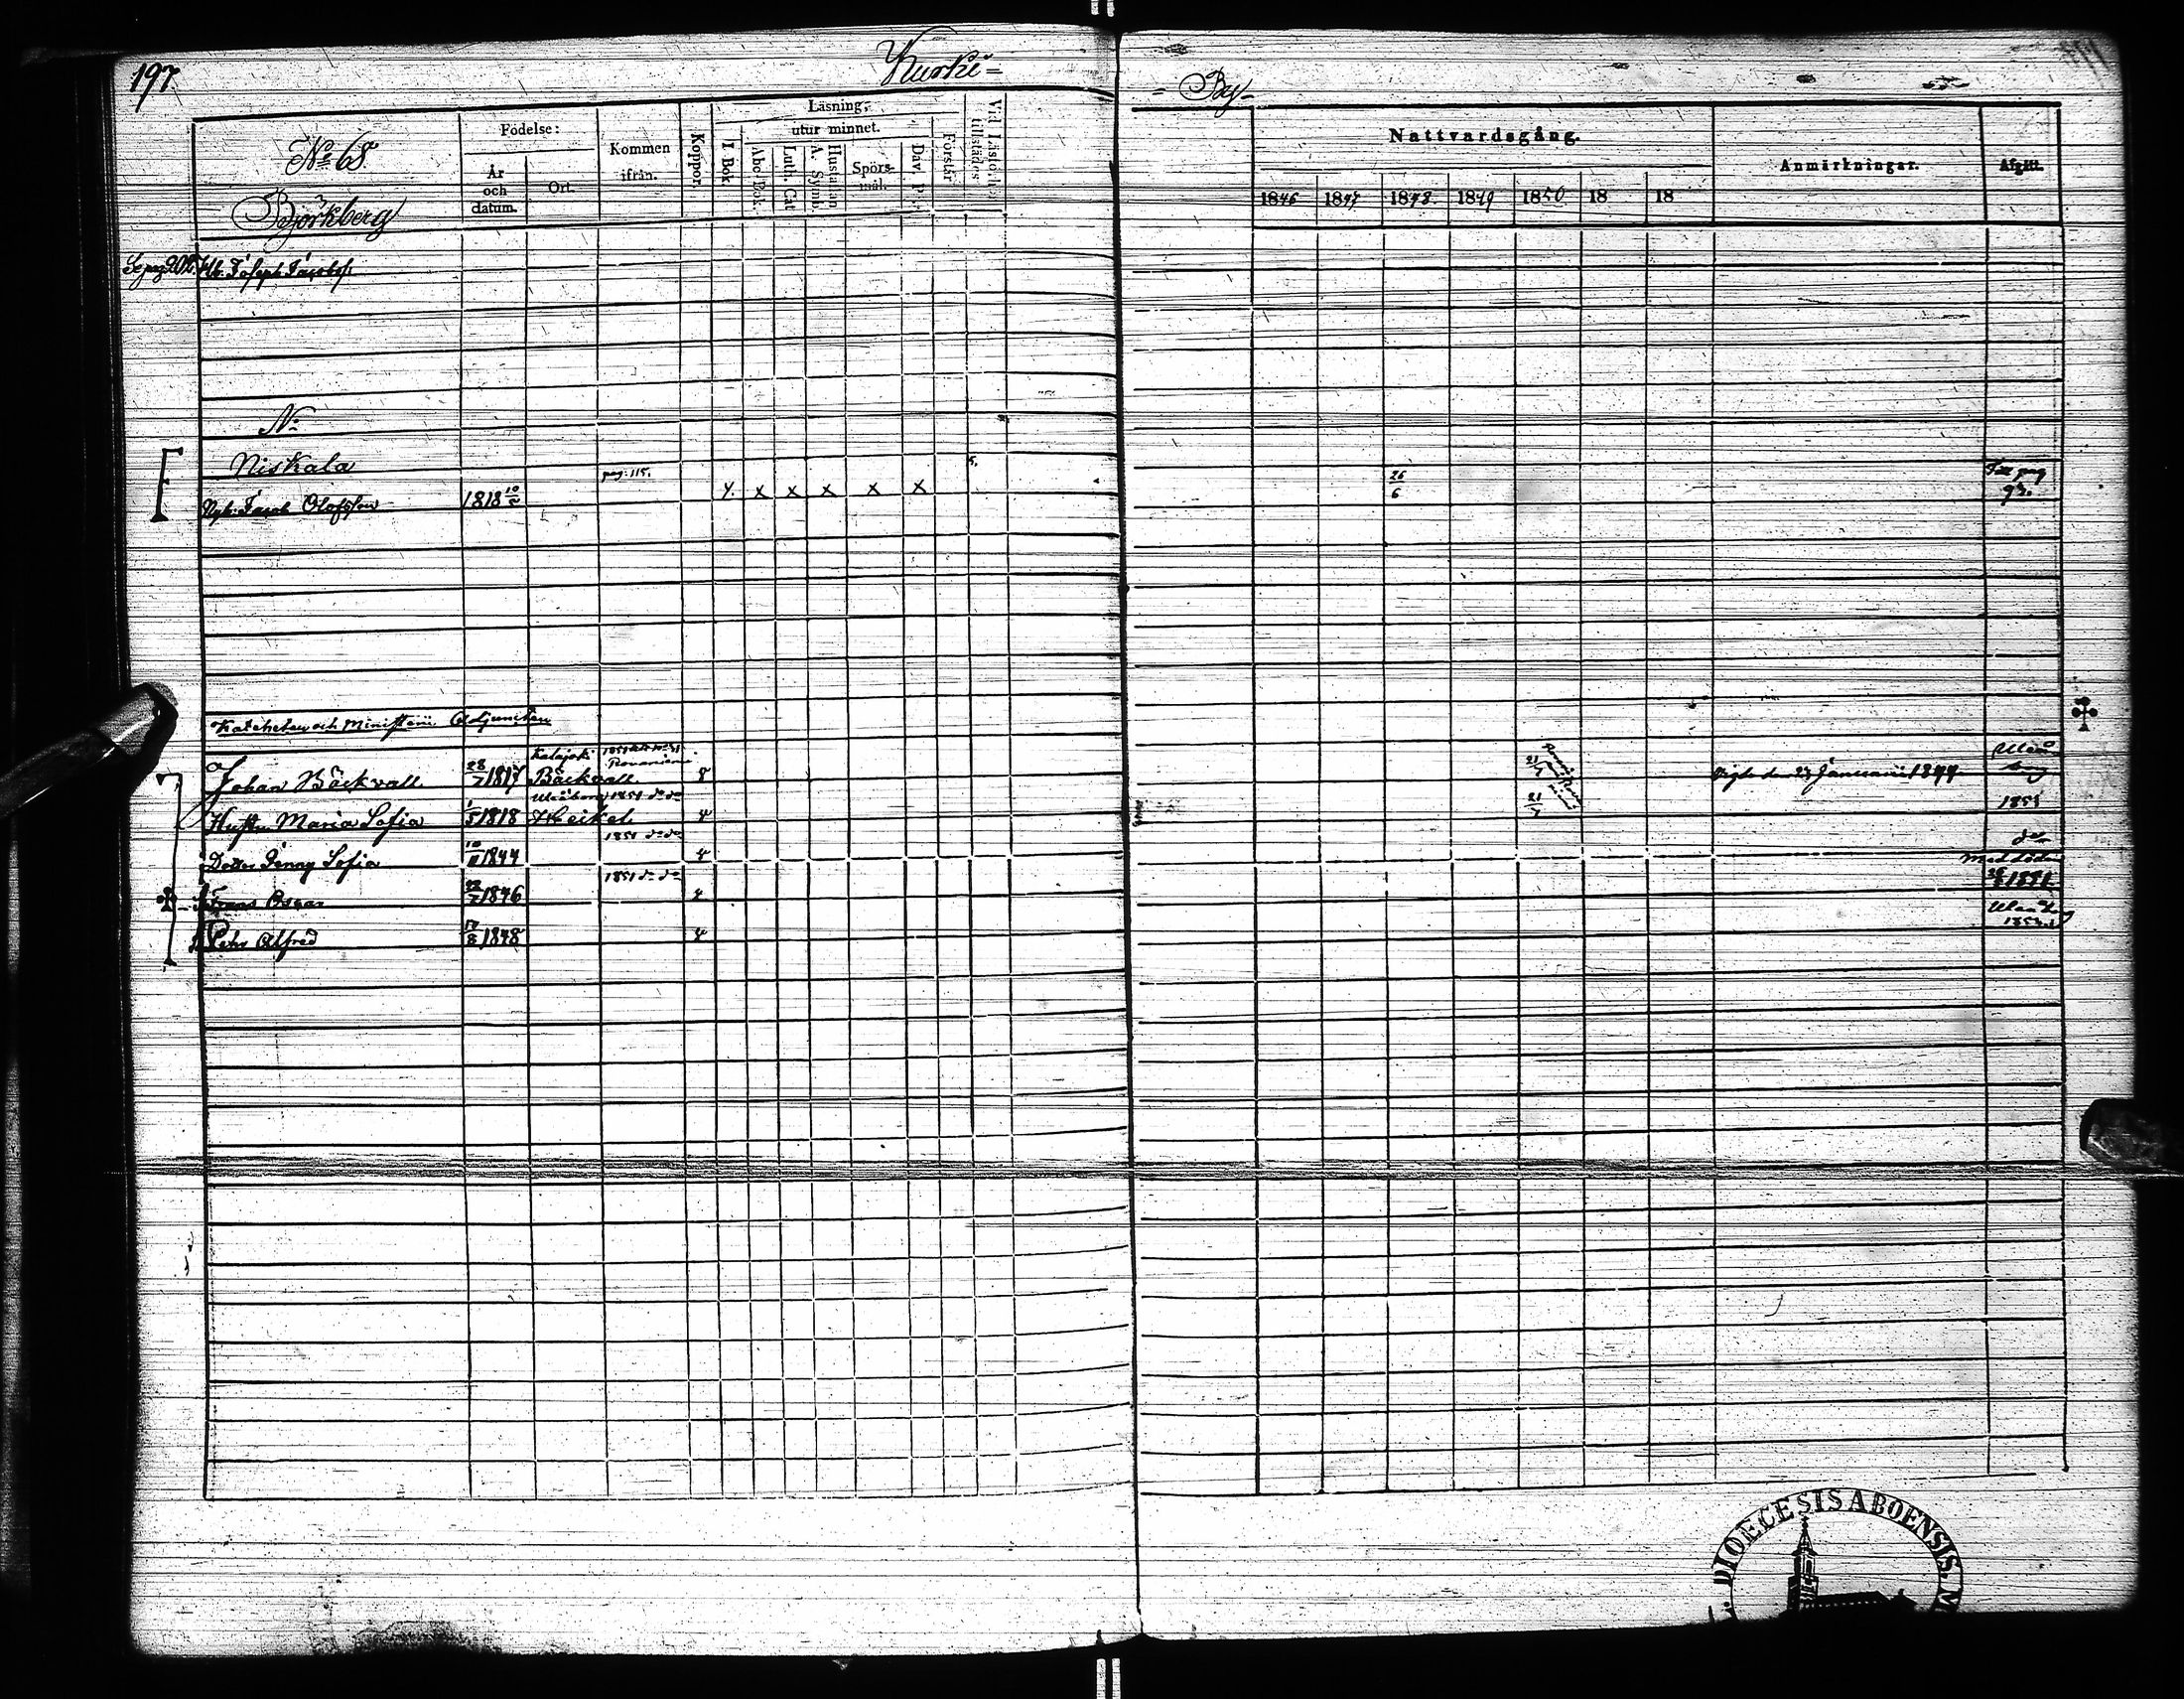 197.
Kurki=
-By-
No 68
Björkberg
Födelse:
År och datum.
Ort.
Kommen ifrån.
Koppor.
Läsning,
utur minnet.
I Bok
Abc-Bok.
Luth. Cat
A. Symb.
Hustaflan
Spörs-mål.
Dav. Ps.
Förstår
Vid Läsförhör tillstädes
Nattvardsgång.
1846 1847 1848. 1849 1850 18 18
Anmärkningar.
Afgått.
Se pag 202 Hb. Joseph Jacobss.
No
Niskala
pag. 115.
Till pag 93.
Jacob Olofsson 1818 10 x x x x x 26/6
Katecheten och Ministerii Adjuncten
Johan Bäckvall 28/7 1817 Kalajoki Bäckvall 1851 Rovaniemi 21/7 Vigde den 27 Januarii 1844 Uleåborg
Hustru Maria Sofia 1/5 1818 Uleåborg Heikel 1851 do do 21/7 1853
Dotter Jenny Sofia 1844 1851 do do do
Frans Oscar 22/7 1846 1851 do do Med döden 1851
Pehr Alfred 17/8 1848 Uleåborg 1853
DIOECESIS ABOENSIS. M